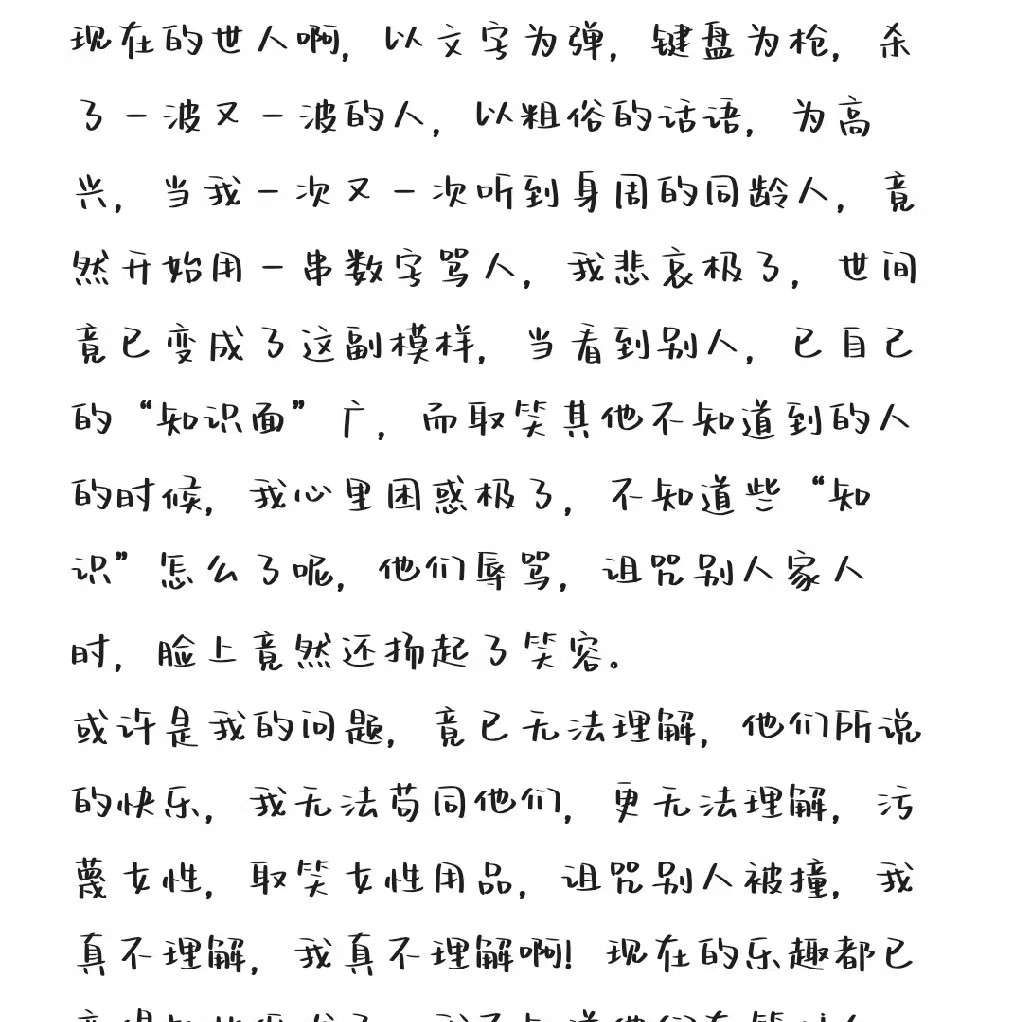 现在的世人啊，以文字为弹，键盘为枪，杀
了一波又一波的人，以粗俗的话语，为高
兴，当我一次又一次听到身周的同龄人，竟
然开始用一串数字骂人，我悲哀极了，世间
竟已变成了这副模样，当看到别人，已自己
的“知识面”广，而取笑其他不知道到的人
的时候，我心里困惑极了，不知道些“知
识”怎么了呢，他们辱骂，诅咒别人家人
时，脸上竟然还扬起了笑容。
或许是我的问题，竟已无法理解，他们所说
的快乐，我无法苟同他们，更无法理解，污
蔑女性，取笑女性用品，诅咒别人被撞，我
真不理解，我真不理解啊！现在的乐趣都已